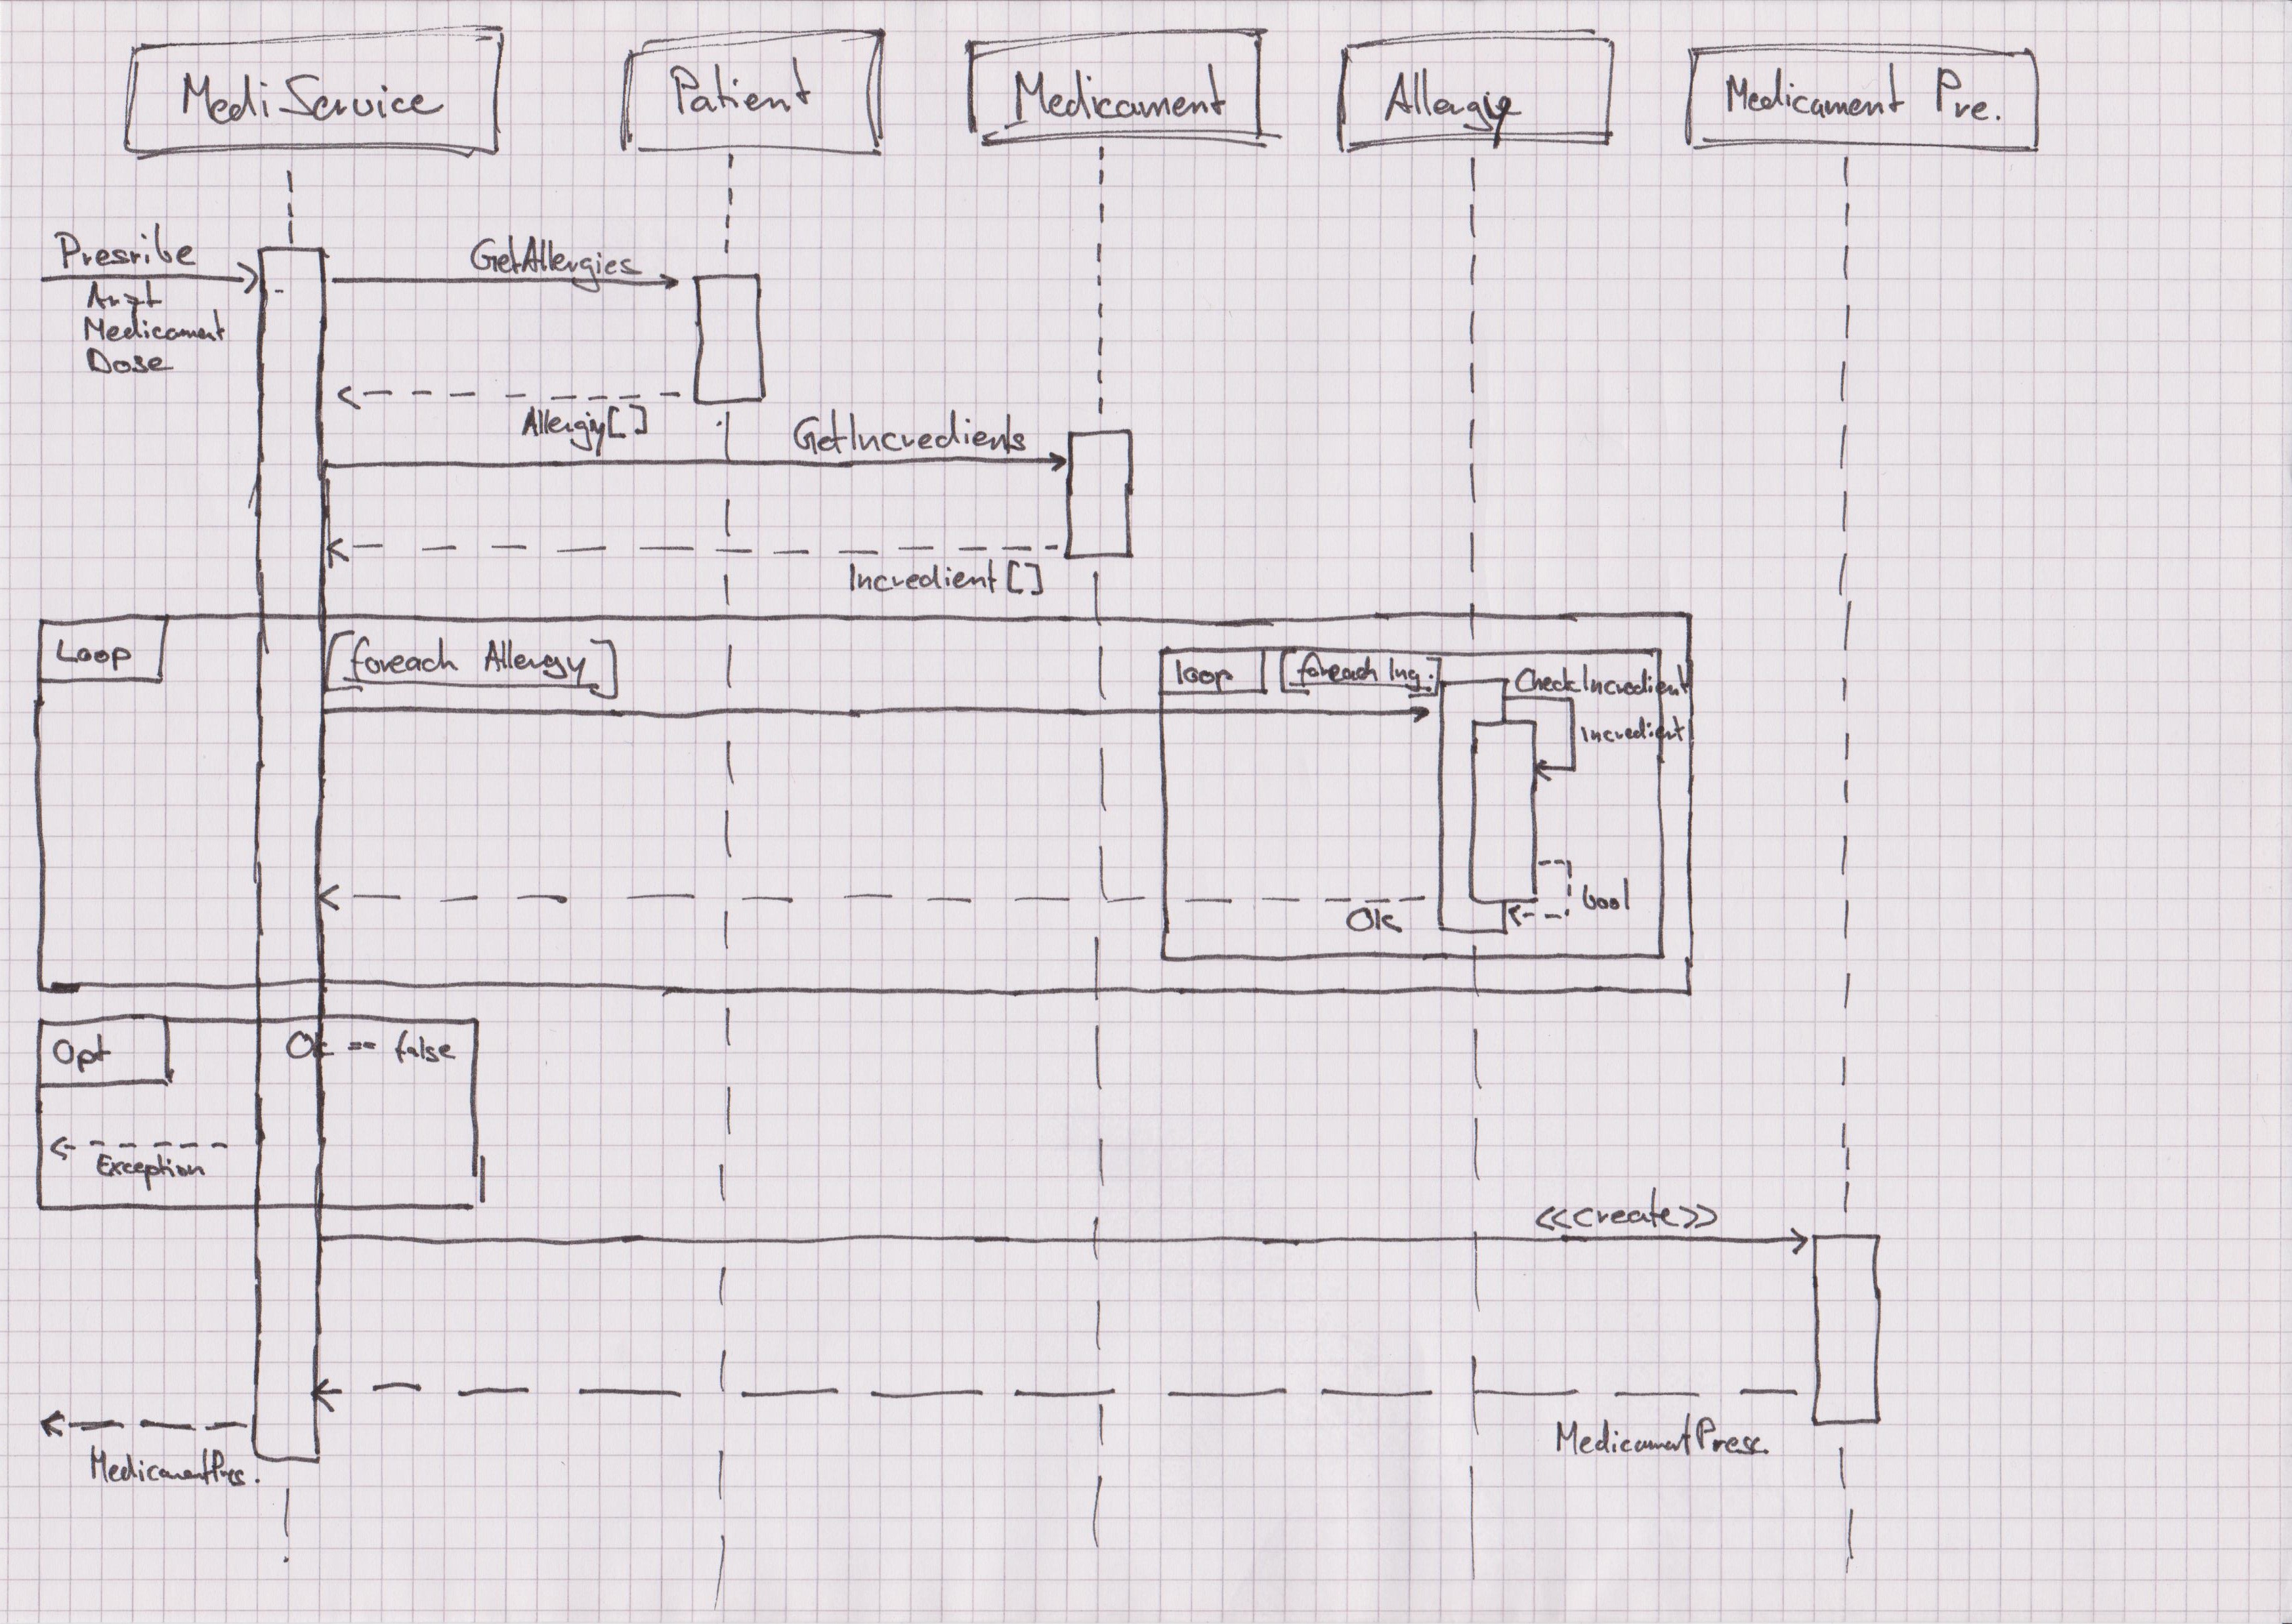 MediService
Patient
Medicament
Allergy
Medicament Pre.
Presribe
Arzt
Medicament
Dose
GetAllergies
Allergy[]
GetIncredients
Incredient[]
Loop
[foreach Allergy]
loop
[foreach Ing.]
CheckIncredient
Incredient
bool
Ok
Opt
Ok == false
Exception
<<create>>
MedicamentPresc.
MedicamentPres.